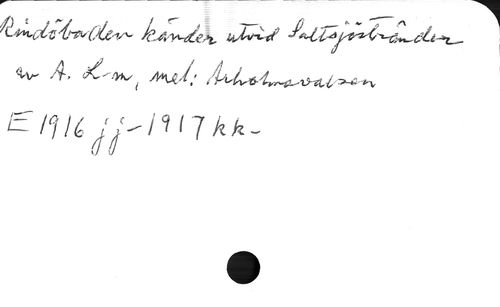 Rindöbaden känder utvid Saltsjöstränder
av A. L-m, mel: Arholmavalsen
E 1916 jj - 1917 kk -